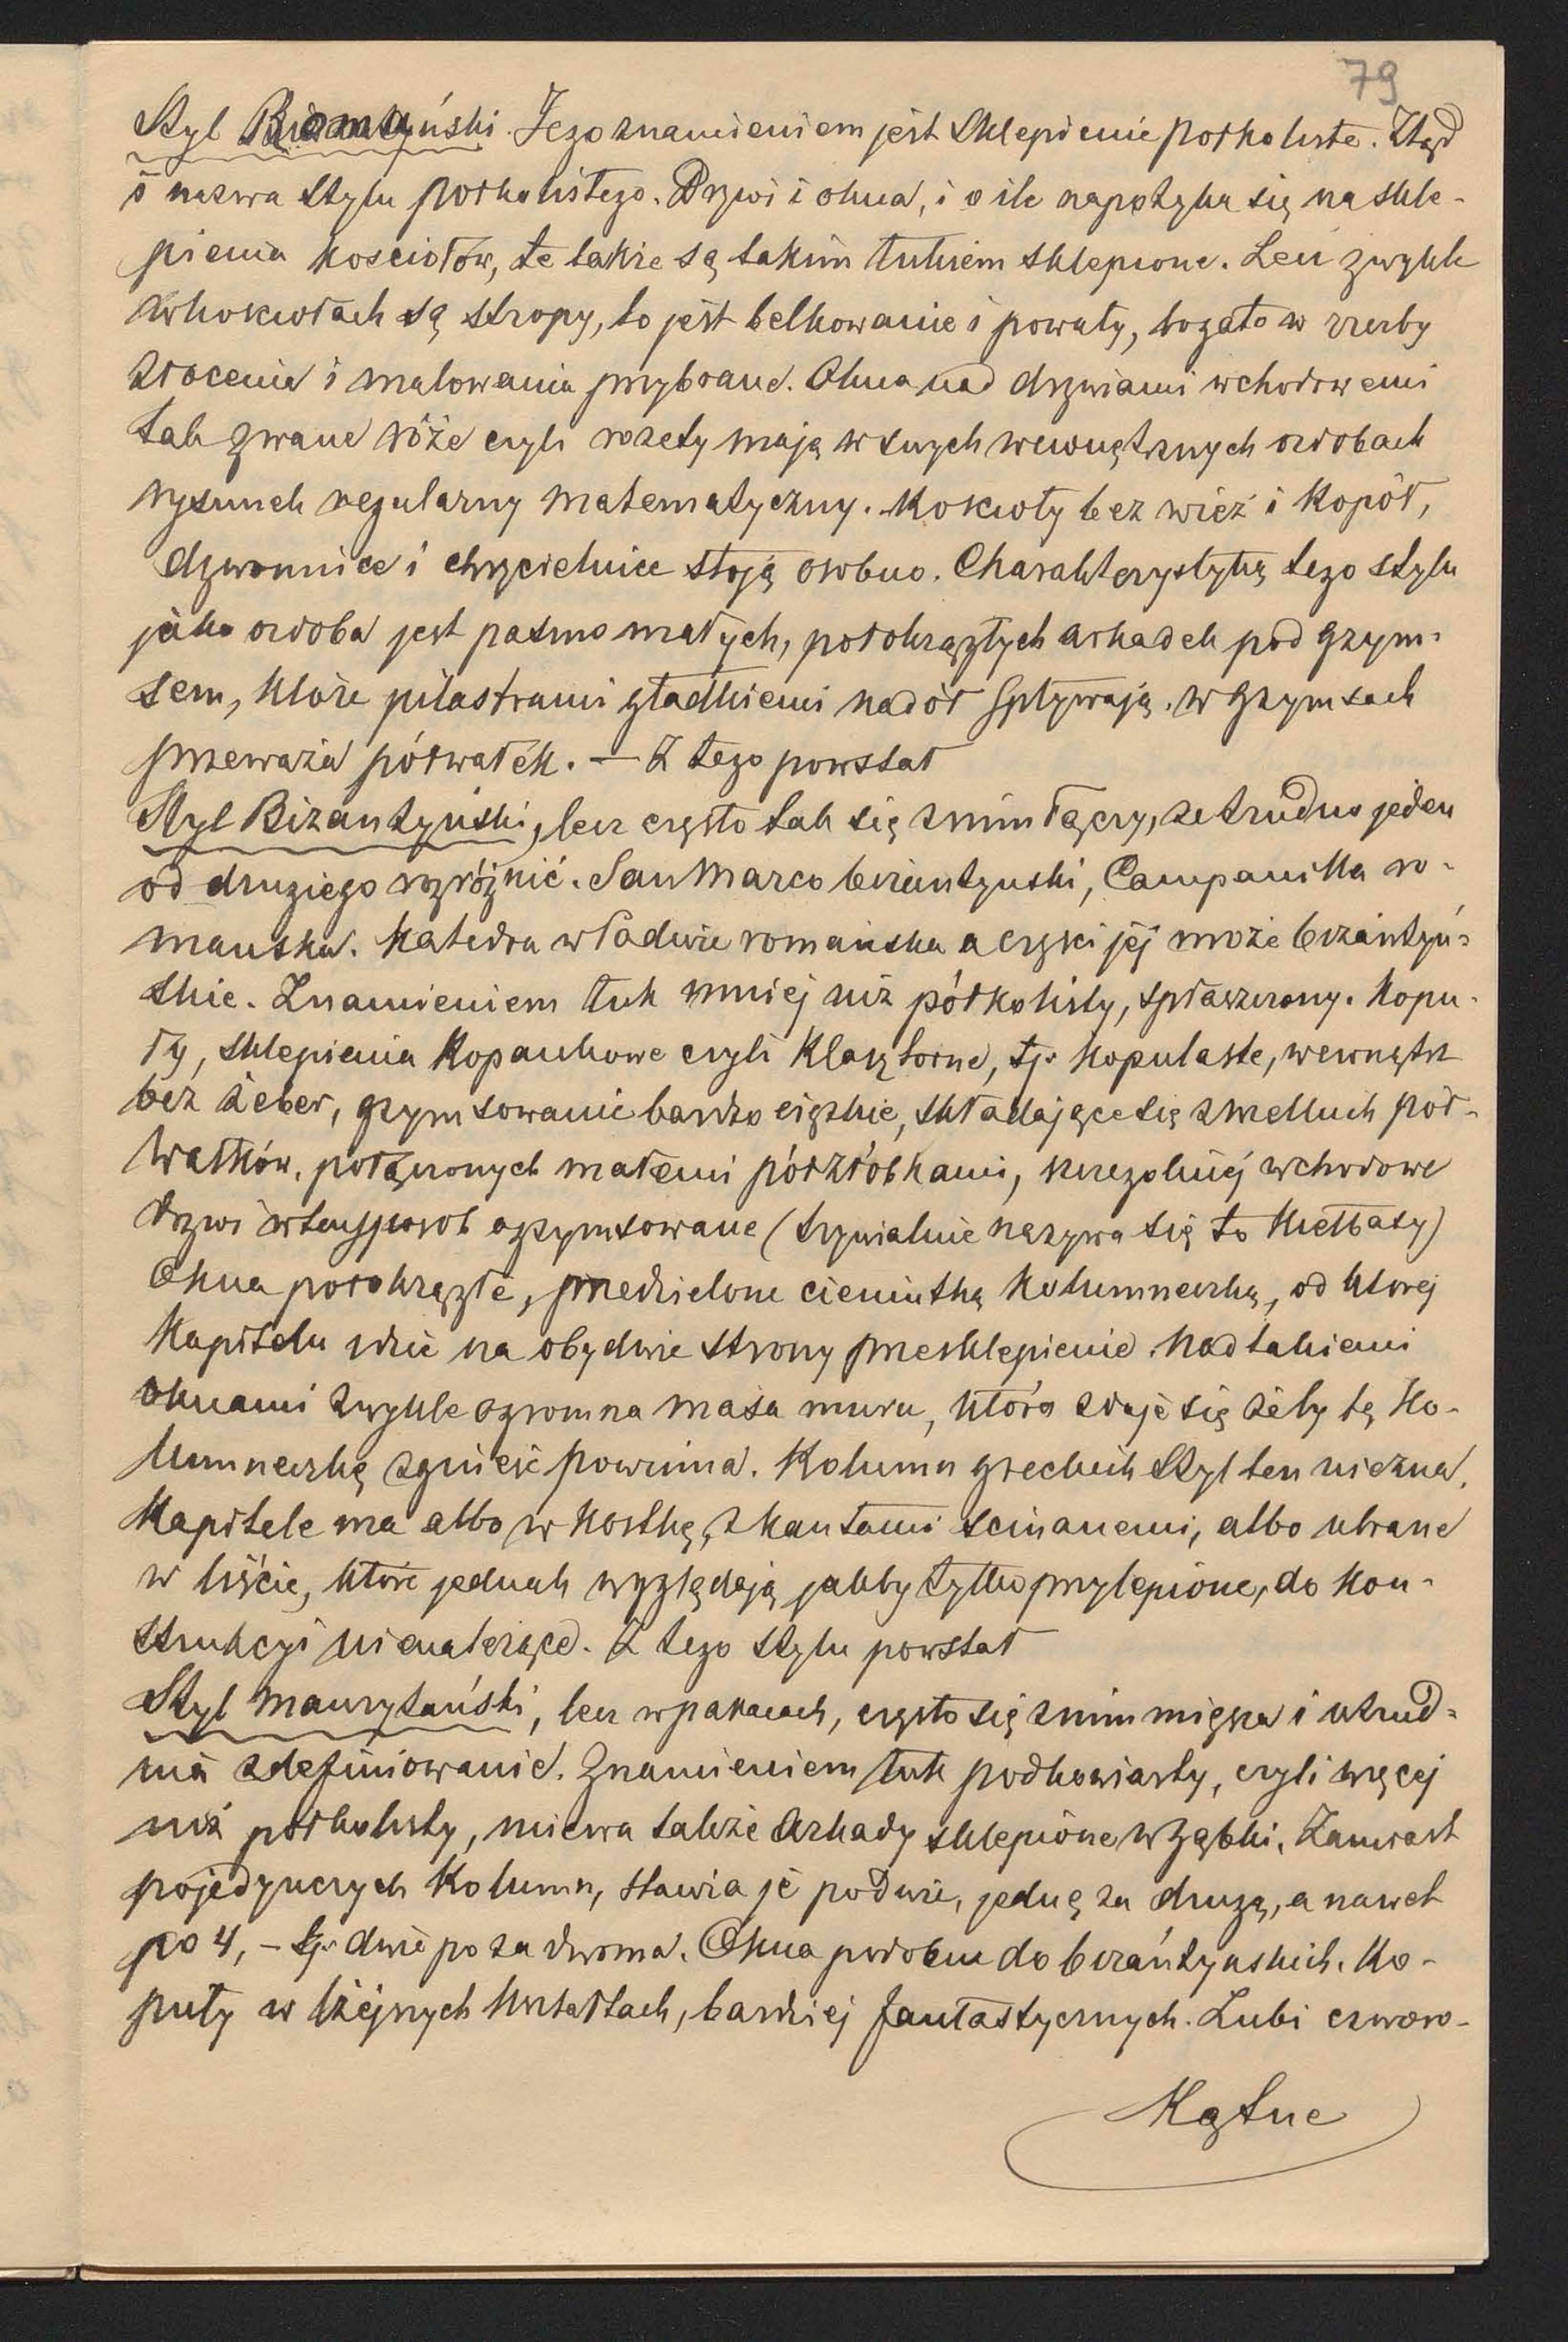 79
Styl Romański. Jego znamieniem jest sklepienie półkoliste. Ztąd
i nazwa stylu półkolistego. Drzwi i okna, i o ile napotyka się na skle-
pienia kosciołów, te także są takim łukiem sklepione. Lecz zwykle
w kosciołach są stropy, to jest belkowanie i powały, bogato w rzezby
złocenia i malowania przybrane. Okna nad drzwiami wchodowemi
tak zwane róże czyli rozety mają w swych wewnętrznych ozdobach
rysunek regularny matematyczny. Koscioły bez wież i kopół,
dzwonnice i chrzcielnice stoją osobno. Charakterystyką tego stylu
jako ozdoba jest pasmo małych, półokrągłych arkadek pod gzym-
sem, które pilastrami gładkiemi nadół spływają. W gzymsach
przeważa półwałek. — Z tego powstał
Styl Bizantyński, lecz często tak się z nim łączy, że trudno jeden
od drugiego rozróżnić. San Marco bizantynski, Campanilla ro-
manska. Katedra w Padwie romańska a częsci jéj może bizantyń-
skie. Znamieniem łuk mniej niż półkolisty, spłaszczony. Kopu-
ły, sklepienia kopankowe czyli klasztorne, tj. kopulaste, wewnątrz
bez żeber, gzymsowanie bardzo ciężkie, składające się z wielkich pół-
wałków, połączonych małemi półżłobkami, szczególniéj wchodowe
drzwi w ten sposob ogzymsowane (trywialnie nazywa się to kiełbasy)
Okna półokrągłe, przedzielone cieniutką kolumneczką, od ktorej
kapitelu idzie na obydwie strony przesklepienie. Nad takiemi
oknami zwykle ogromna masa muru, która zdaje się żeby tę ko-
lumneczkę zgnieść powinna. Kolumn greckich styl ten nie zna.
Kapitele ma albo w kostkę, z kantami scinanemi, albo ubrane
w liście, które jednak wyglądają jakby tylko przylepione, do kon-
strukcyi nienależące. Z tego stylu powstał
Styl maurytański, lecz w pałacach, często się z nim miesza i utrud-
nia zdefiniowanie. Znamieniem łuk podkowiasty, czyli więcej
niż półkolisty, miewa także arkady sklepione w ząbki. Zamiast
pojedynczych kolumn, stawia je po dwie, jedną za drugą, a nawet
po 4, – tj. dwie po za dwoma. Okna podobne do bizańtynskich. Ko-
puły w lżejszych kształtach, bardziej fantastycznych. Lubi czworo-
kątne